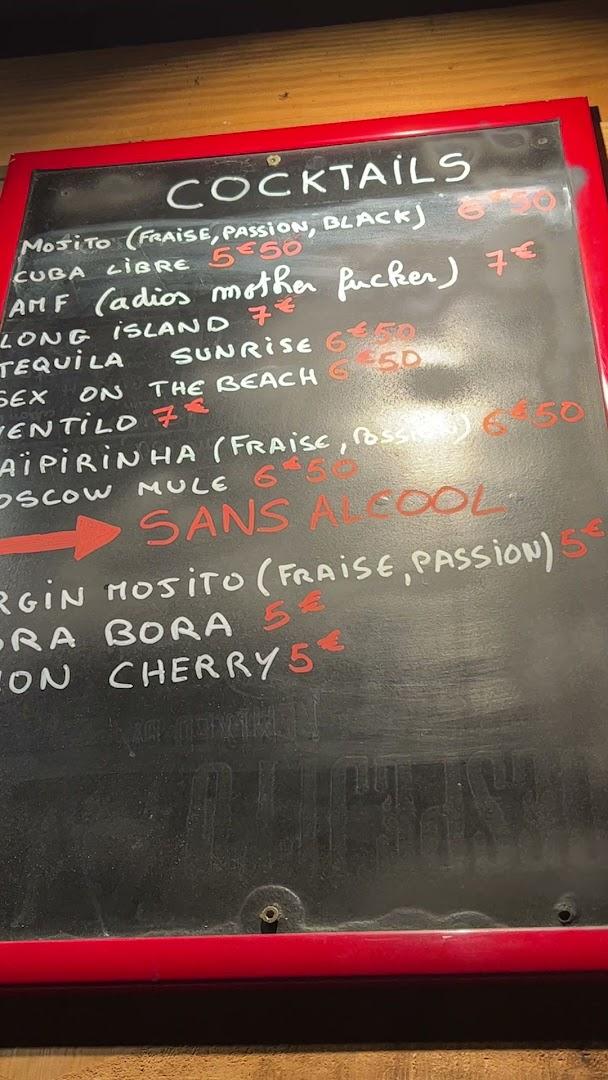 COCKTAILS
MOJITO (FRAISE, PASSION, BLACK) 6€50
CUBA LIBRE 5€50
AMF (adios mother fucker) 7€
LONG ISLAND 7€
TEQUILA SUNRISE 6€50
SEX ON THE BEACH 6€50
VENTILO 7€
AÏPIRINHA (FRAISE, PASSION) 6€50
OSCOW MULE 6€50
SANS ALCOOL
RGIN MOJITO (FRAISE, PASSION) 5€
ORA BORA 5€
ION CHERRY 5€